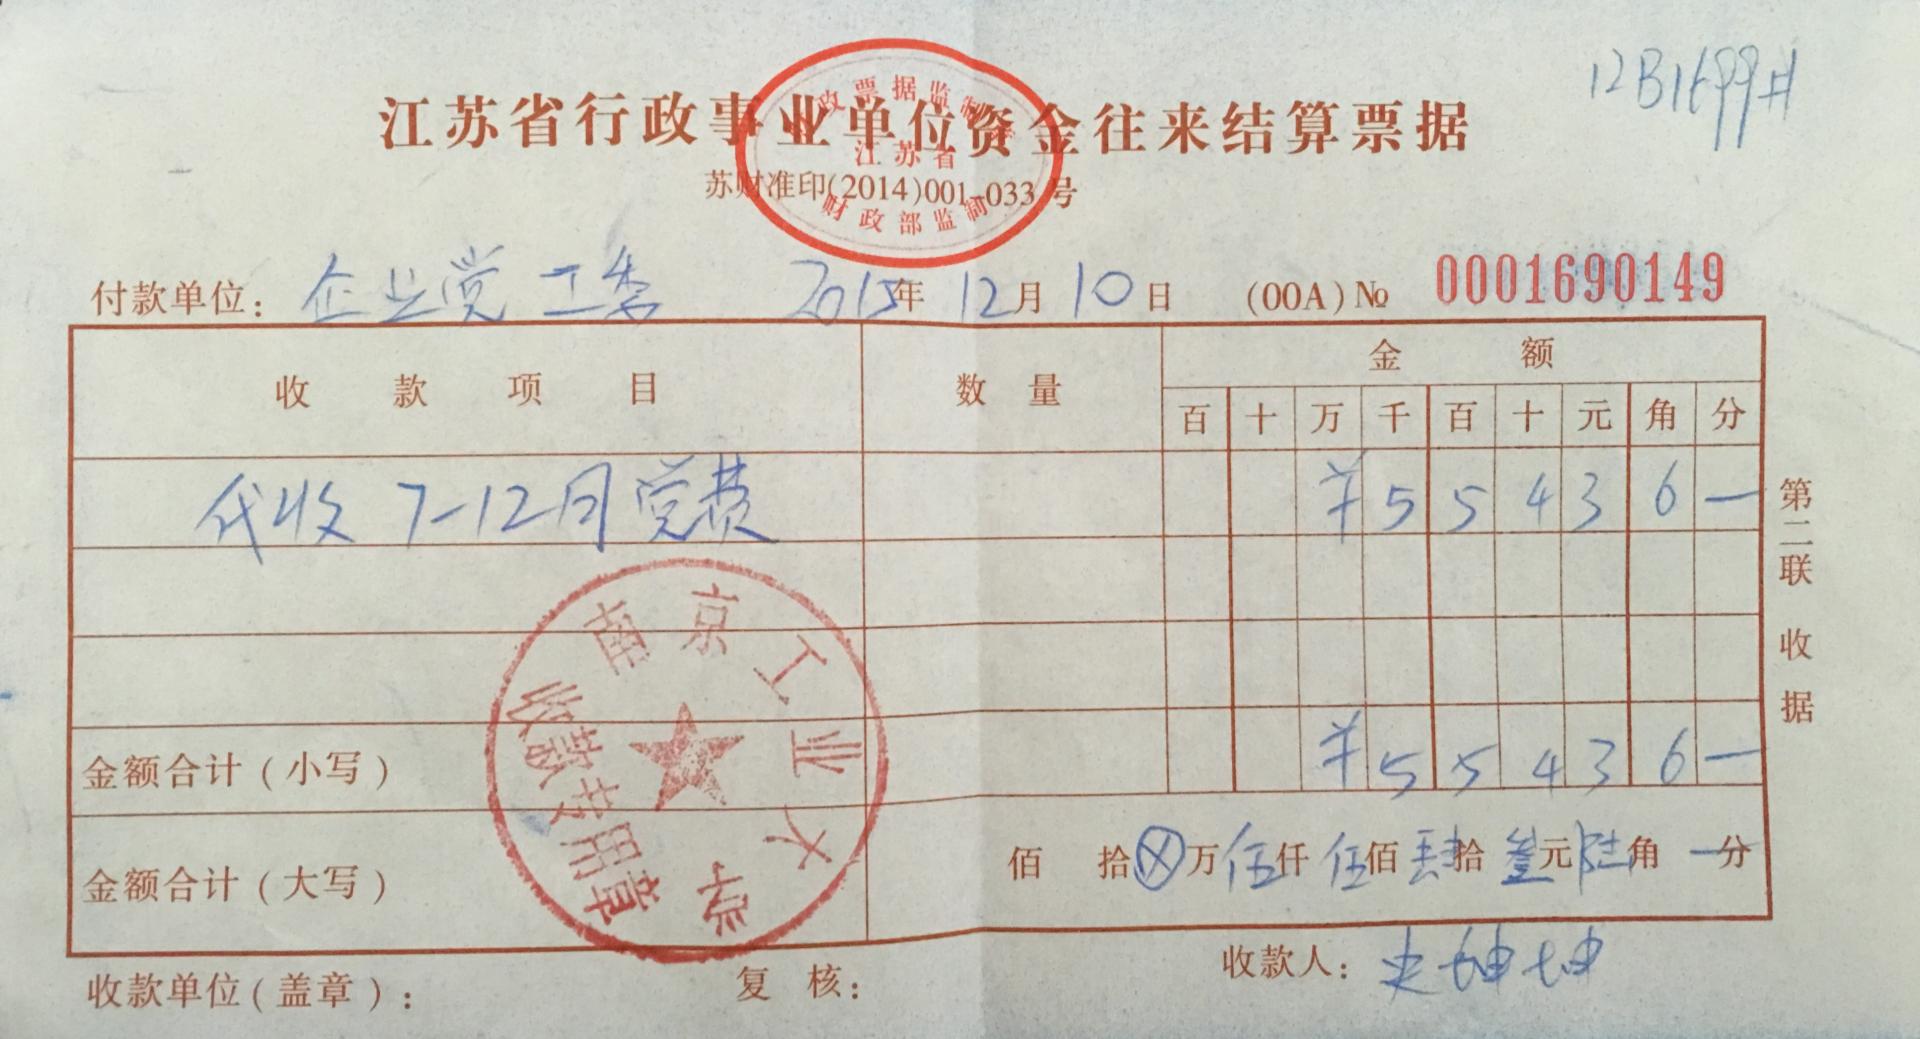 12B1699#
江苏省行政事业单位资金往来结算票据
财政票据监制章
江苏省
财政部监制
苏财准印(2014)001-033号
付款单位：企业党工委 2015年12月10日 (00A)№ 0001690149
收款项目 数量 金额
百 十 万 千 百 十 元 角 分
代收7-12月党费 ¥ 5 5 4 3 6 —
金额合计（小写） ¥ 5 5 4 3 6 —
金额合计（大写） 佰 拾 ⊗万 伍仟 伍佰 肆拾 叁元 陆角 —分
南京工业大学
收款专用章
第二联 收据
收款单位(盖章)： 复核： 收款人：史坤坤